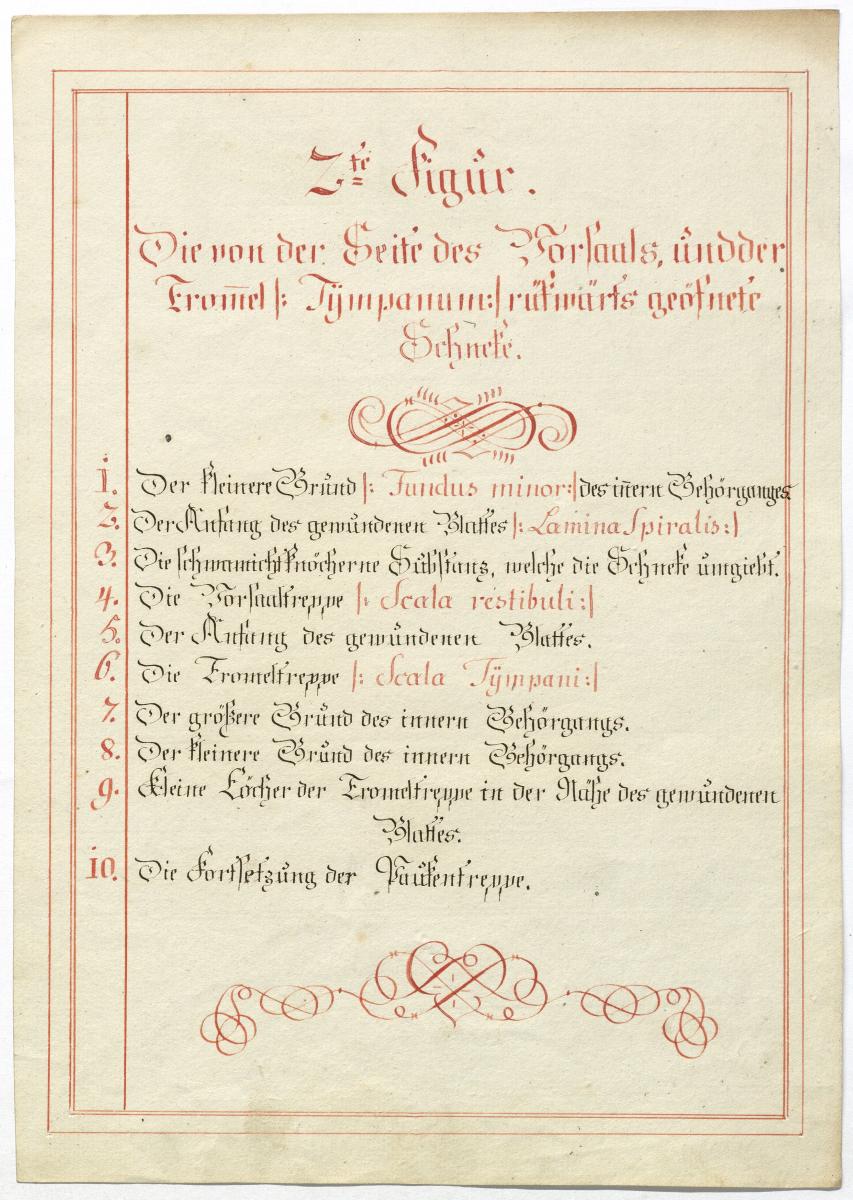 2te Figur.
Die von der Seite des Vorsaals, und der
Trom̅el |: Tÿmpanum :| rükwärts geöfnete
Schneke.
1. Der kleinere Grund |: Fundus minor :| des in̅ern Gehörganges
2. Der Anfang des gewundenen Blattes |: Lamina Spiralis :|
3. Die schwamichtknöcherne Substanz, welche die Schneke umgiebt.
4. Die Vorsaaltreppe |: Scala vestibuli :|
5. Der Anfang des gewundenen Blattes.
6. Die Tromeltreppe |: Scala Tÿmpani :|
7. Der größere Grund des innern Gehörgangs.
8. Der kleinere Grund des innern Gehörgangs.
9. Kleine Löcher der Tromeltreppe in der Nähe des gewundenen
Blattes.
10. Die Fortsetzung der Paukentreppe.